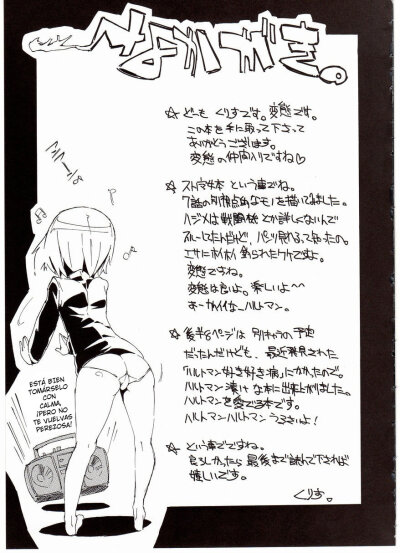 まえがき。
☆ どーも くりすです。変態です。
この本を手に取って下さって
ありがとうございます。
変態の仲間入りですね♡
☆ ストマ4本 という事でね。
7話の別視点的なモノを描いてみました。
ハジメは戦闘機とか詳しくないんで
スルーしてたんだけど、パンツ見れるって知ったの。
エサにホイホイ釣られたワケですよ。
変態ですね。
変態は良いよ。楽しいよ～
あーかわいいなーハルトマン。
☆ 後半8ページは 別キャラの予定
だったんだけども、最近発見された
「ハルトマン好き好き病」にかかったので。
ハルトマン漬けな本に出来上がりました。
ハルトマンを愛でる本です。
ハルトマンハルトマンうるさいよ！
☆ という事でですね。
良ろしかったら 最後まで読んで下されば
嬉しいです。
くりす。
ESTÁ BIEN
TOMÁRSELO
CON
CALMA,
¡PERO NO
TE VUELVAS
PEREZOSA!